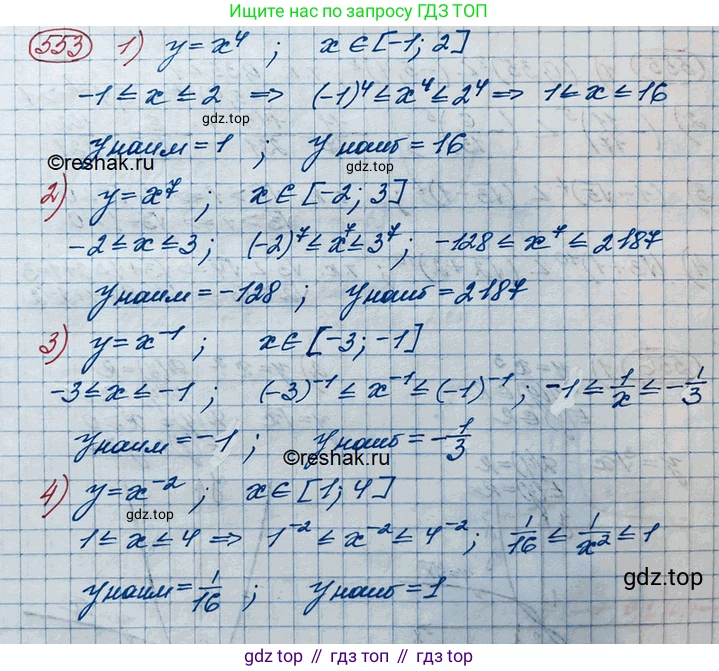 Ищите нас по запросу ГДЗ ТОП
553 1) y = x⁴ ; x ∈ [-1; 2]
-1 ≤ x ≤ 2 ⇒ (-1)⁴ ≤ x⁴ ≤ 2⁴ ⇒ 1 ≤ x ≤ 16
gdz.top
y наим = 1 ; y наиб = 16
©reshak.ru
gdz.top
2) y = x⁷ ; x ∈ [-2; 3]
-2 ≤ x ≤ 3 ; (-2)⁷ ≤ x⁷ ≤ 3⁷ ; -128 ≤ x⁷ ≤ 2187
y наим = -128 ; y наиб = 2187
3) y = x⁻¹ ; x ∈ [-3; -1]
-3 ≤ x ≤ -1 ; (-3)⁻¹ ≤ x⁻¹ ≤ (-1)⁻¹ ; -1 ≤ 1/x ≤ -1/3
y наим = -1 ; y наиб = -1/3
©reshak.ru
4) y = x⁻² ; x ∈ [1; 4]
gdz.top
1 ≤ x ≤ 4 ⇒ 1⁻² ≤ x⁻² ≤ 4⁻² ; 1/16 ≤ 1/x² ≤ 1
y наим = 1/16 ; y наиб = 1
gdz.top
гдз топ // гдз топ // гдз топ